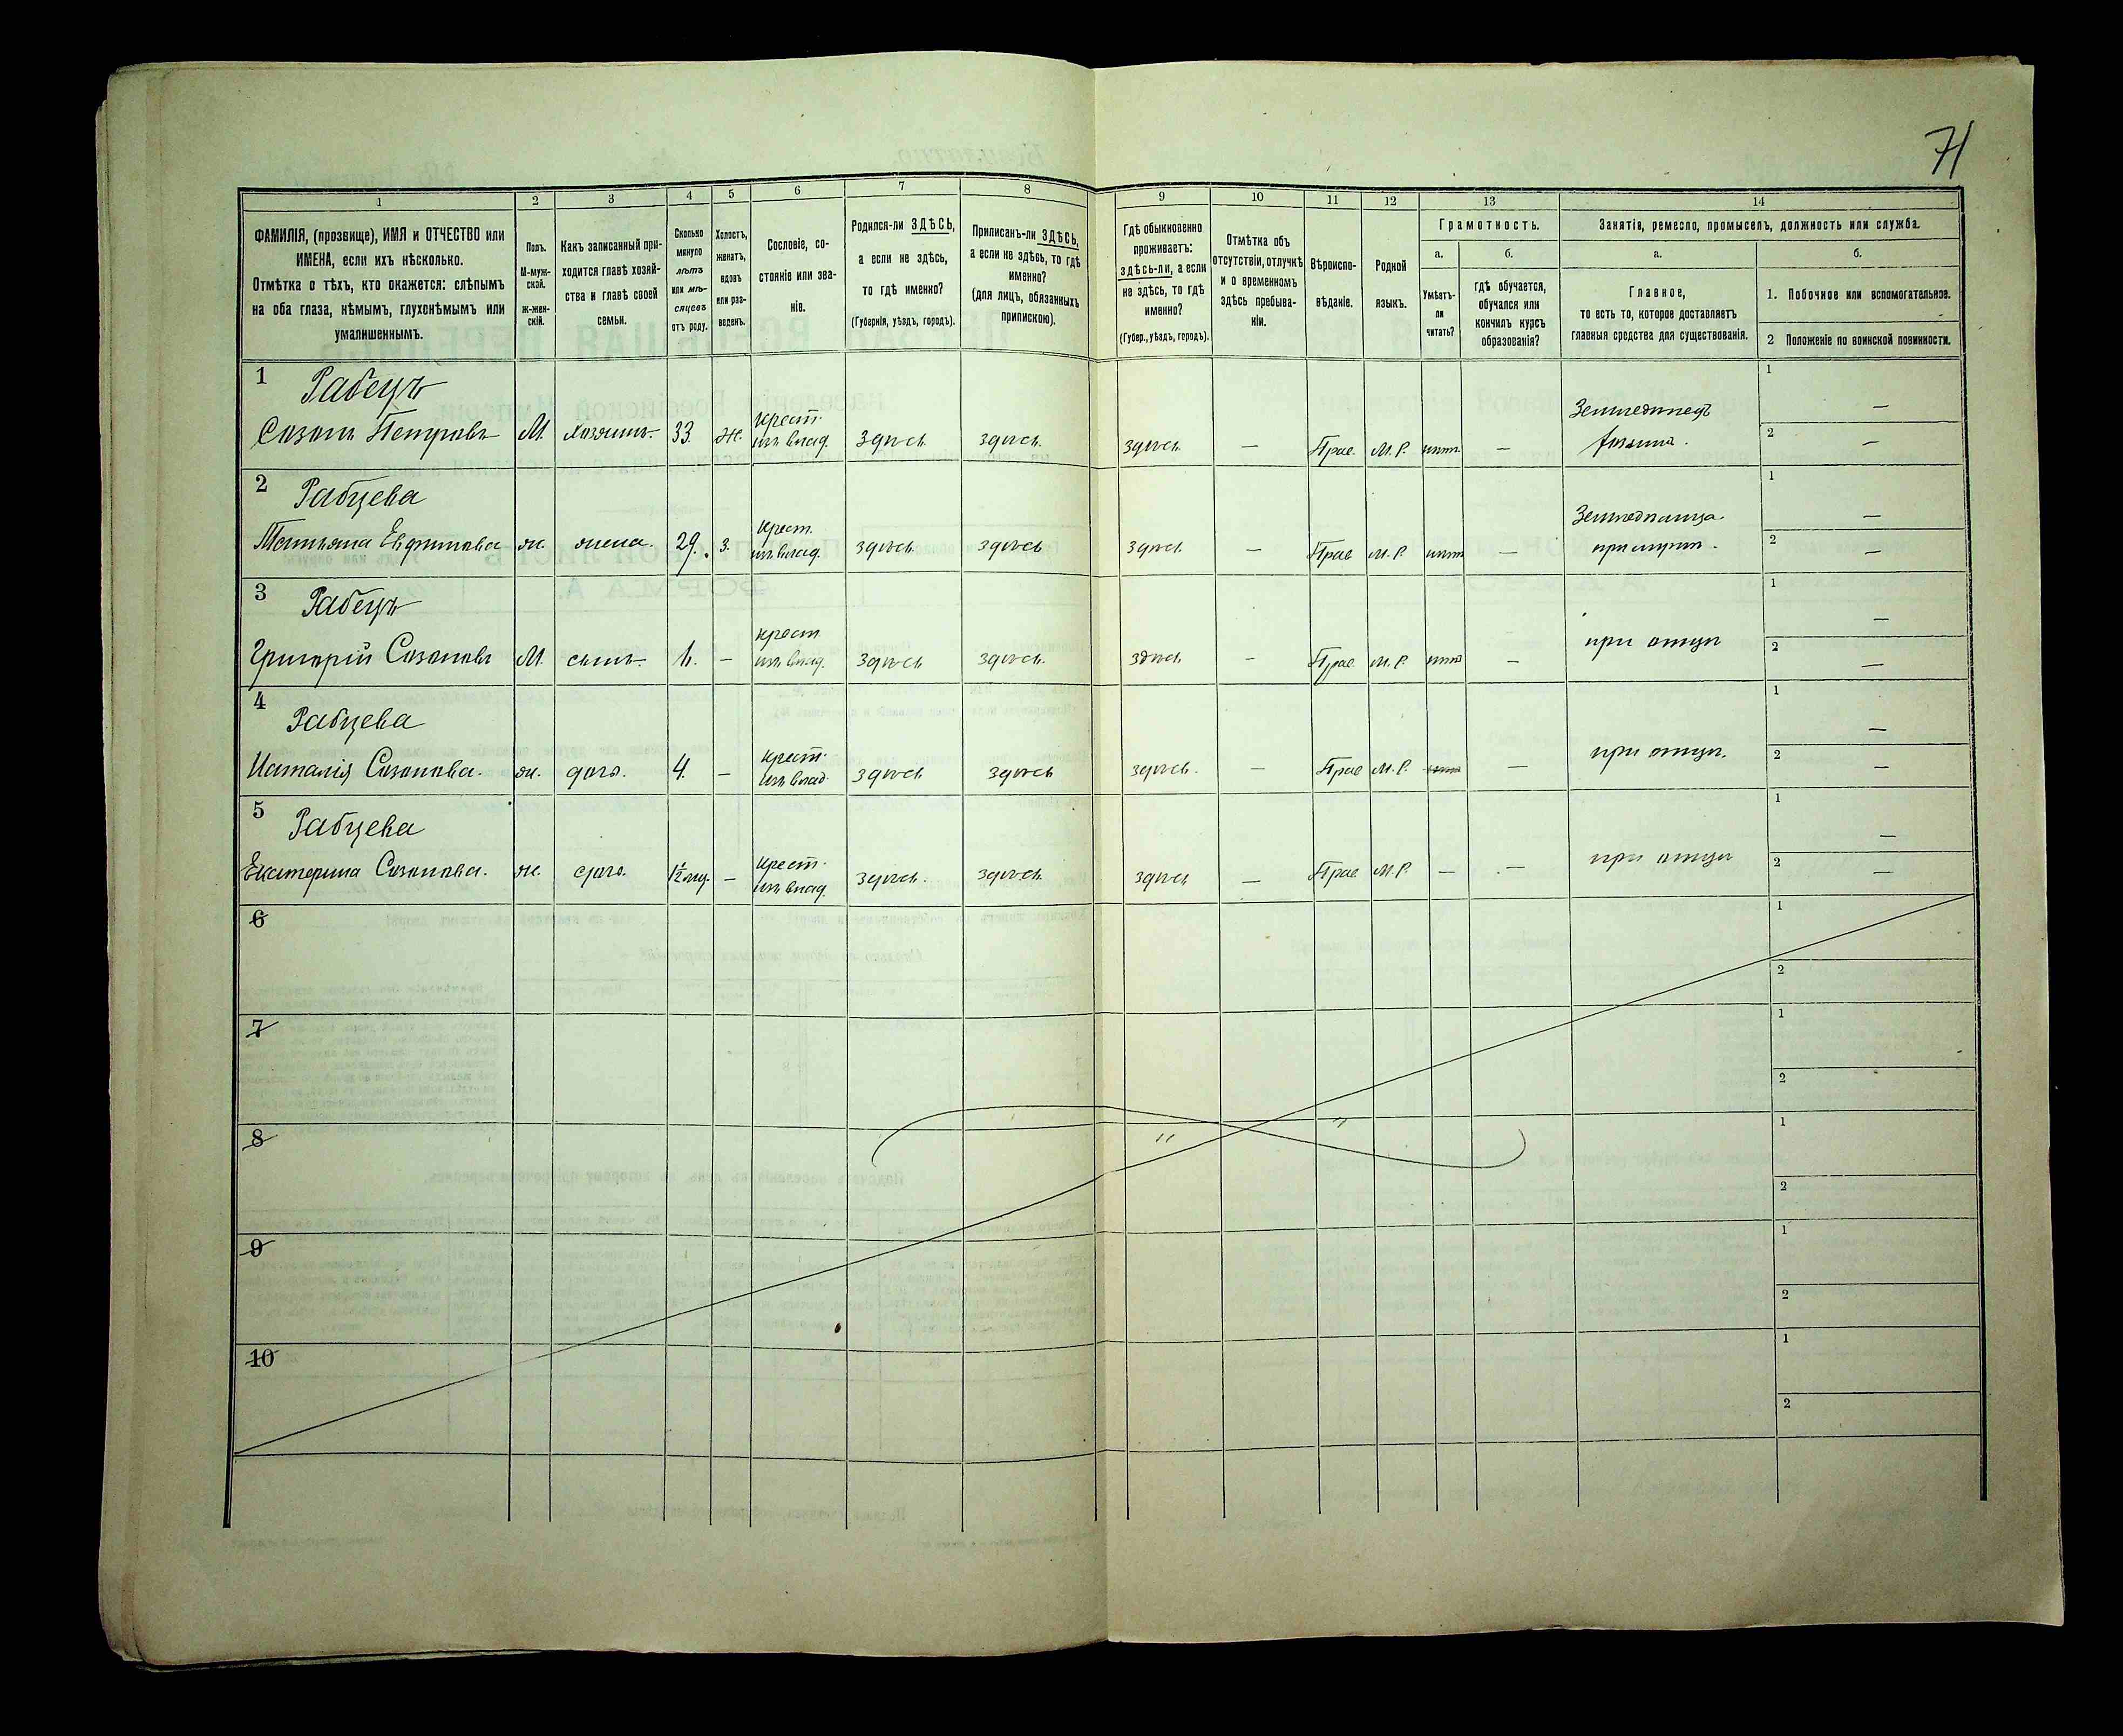 71
1 2 3 4 5 6 7 8 9 10 11 12 13 14
ФАМИЛІЯ, (прозвище), ИМЯ и ОТЧЕСТВО или
ИМЕНА, если ихъ нѣсколько.
Отмѣтка о тѣхъ, кто окажется: слѣпымъ
на оба глаза, нѣмымъ, глухонѣмымъ или
умалишеннымъ.
Полъ.
М-муж-
ской.
ж-жен-
скій.
Какъ записанный при-
ходится главѣ хозяй-
ства и главѣ своей
семьи.
Сколько
минуло
лѣтъ
или мѣ-
сяцевъ
отъ роду.
Холостъ,
женатъ,
вдовъ
или раз-
веденъ.
Сословіе, со-
стояніе или зва-
ніе.
Родился-ли ЗДѢСЬ,
а если не здѣсь,
то гдѣ именно?
(Губернія, уѣздъ, городъ).
Приписанъ-ли ЗДѢСЬ,
а если не здѣсь, то гдѣ
именно?
(для лицъ, обязанныхъ
припискою).
Гдѣ обыкновенно
проживаетъ:
здѣсь-ли, а если
не здѣсь, то гдѣ
именно?
(Губер., уѣздъ, городъ).
Отмѣтка объ
отсутствіи, отлучкѣ
и о временномъ
здѣсь пребыва-
ніи.
Вѣроиспо-
вѣданіе.
Родной
языкъ.
Грамотность.
а.
Умѣетъ-
ли
читать?
б.
гдѣ обучается,
обучался или
кончилъ курсъ
образованія?
Занятія, ремесло, промыселъ, должность или служба.
а.
Главное,
то есть то, которое доставляетъ
главныя средства для существованія.
б.
1. Побочное или вспомогательное.
2 Положеніе по воинской повинности.
1 Рабецъ
Созонъ Петровъ М. хозяинъ 33. Ж. крест. изъ влад. здѣсь здѣсь здѣсь — Прав. М. Р. нѣтъ — Земледѣлецъ хозяинъ. 1 — 2 —
2 Рабцева
Татьяна Евфимова ж. жена. 29. з. крест. изъ влад. здѣсь здѣсь здѣсь — Прав М. Р. нѣтъ — Земледѣлица при мужѣ. 1 — 2 —
3 Рабецъ
Григорій Созоновъ М. сынъ — крест. изъ влад. здѣсь здѣсь. здѣсь — Прав. М. Р. нѣтъ — при отцѣ 1 — 2 —
4 Рабцева
Наталія Созонова. ж. дочь. 4. — крест. изъ влад. здѣсь здѣсь здѣсь. — Прав М. Р. — при отцѣ. 1 — 2 —
5 Рабцева
Екатерина Созонова. ж. дочь. 1½ мѣс. — крест. изъ влад. здѣсь. здѣсь здѣсь — Прав М. Р. — — при отцѣ 1 — 2 —
6 1 2
7 1 2
8 " " 1 2
9 1 2
10 1 2